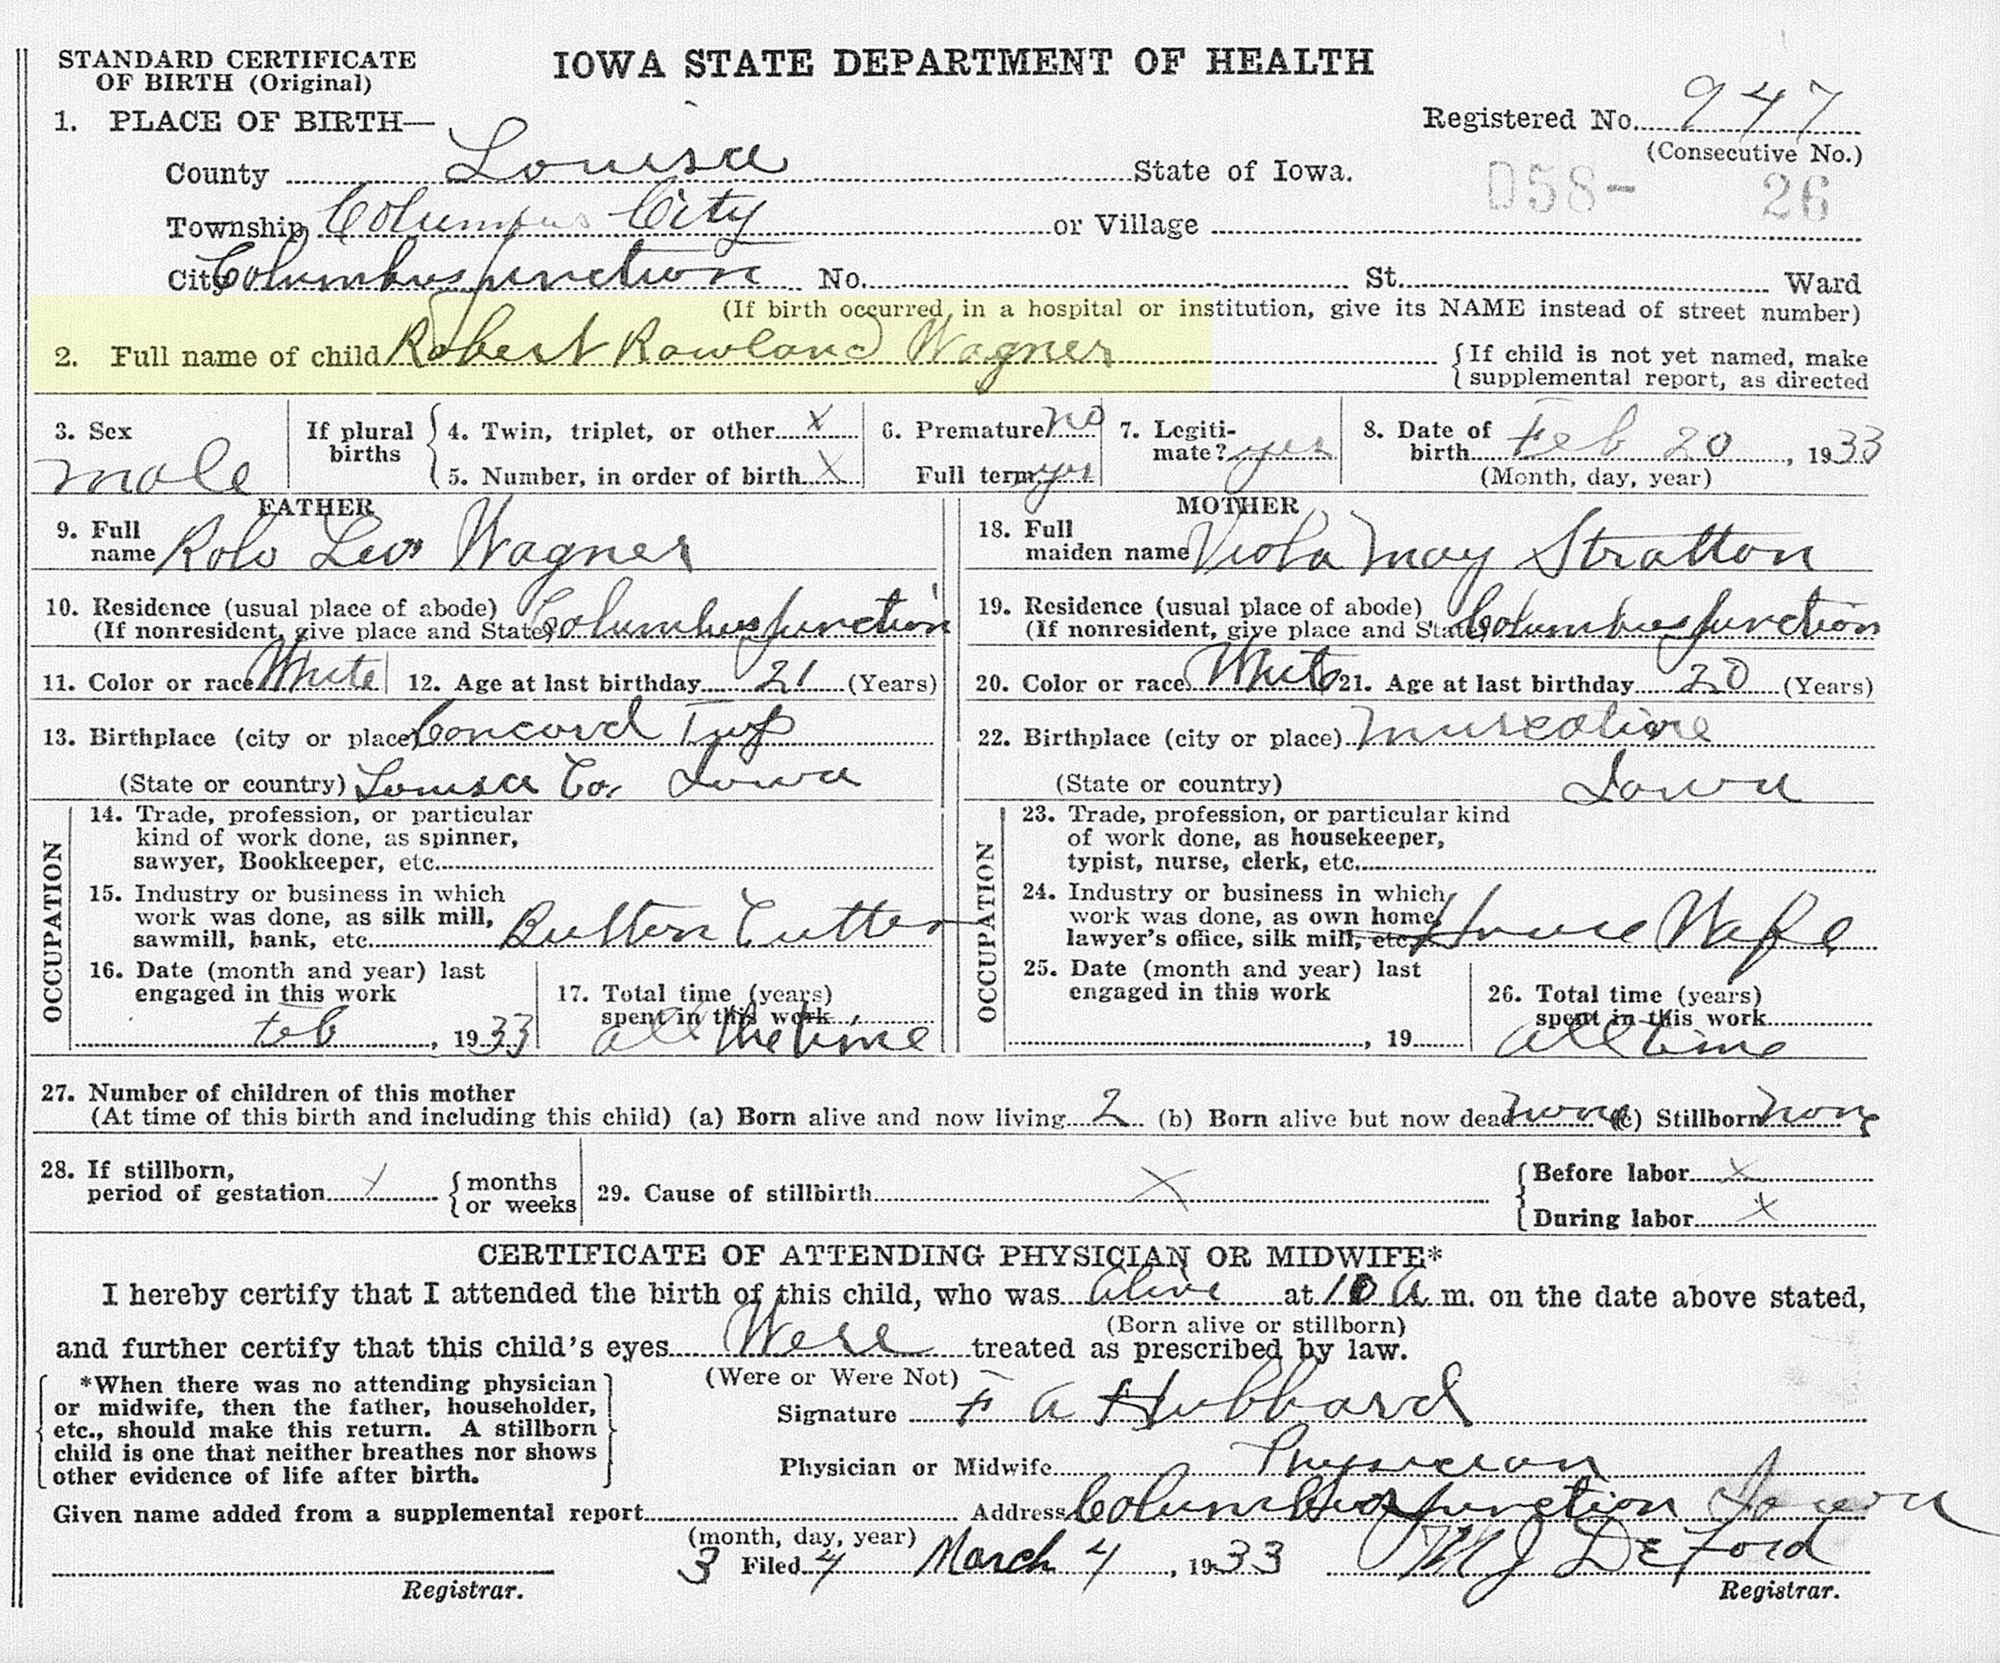 STANDARD CERTIFICATE OF BIRTH (Original)
IOWA STATE DEPARTMENT OF HEALTH
1. PLACE OF BIRTH—
Registered No. 947
(Consecutive No.)
County Louisa State of Iowa.
D58- 26
Township Columbus City or Village
City Columbus Junction No. St. Ward
(If birth occurred in a hospital or institution, give its NAME instead of street number)
2. Full name of child Robert Rowland Wagner {If child is not yet named, make supplemental report, as directed
3. Sex male
If plural births { 4. Twin, triplet, or other X
5. Number, in order of birth X
6. Premature no
Full term yes
7. Legitimate? yes
8. Date of birth Feb 20, 1933
(Month, day, year)
FATHER
9. Full name Rolo Leo Wagner
10. Residence (usual place of abode) Columbus Junction
(If nonresident, give place and State)
11. Color or race White 12. Age at last birthday 21 (Years)
13. Birthplace (city or place) Concord Twp
(State or country) Louisa Co. Iowa
OCCUPATION
14. Trade, profession, or particular
kind of work done, as spinner,
sawyer, Bookkeeper, etc.
15. Industry or business in which
work was done, as silk mill,
sawmill, bank, etc. Button Cutter
16. Date (month and year) last
engaged in this work
Feb, 1933
17. Total time (years)
spent in this work
all the time
MOTHER
18. Full maiden name Viola May Stratton
19. Residence (usual place of abode) Columbus Junction
(If nonresident, give place and State)
20. Color or race White 21. Age at last birthday 20 (Years)
22. Birthplace (city or place) Muscatine
(State or country) Iowa
OCCUPATION
23. Trade, profession, or particular kind
of work done, as housekeeper,
typist, nurse, clerk, etc.
24. Industry or business in which
work was done, as own home,
lawyer's office, silk mill, etc. House Wife
25. Date (month and year) last
engaged in this work
, 19
26. Total time (years)
spent in this work
all time
27. Number of children of this mother
(At time of this birth and including this child) (a) Born alive and now living 2 (b) Born alive but now dead none (c) Stillborn none
28. If stillborn,
period of gestation X {months or weeks
29. Cause of stillbirth X
{Before labor X
During labor X
CERTIFICATE OF ATTENDING PHYSICIAN OR MIDWIFE*
I hereby certify that I attended the birth of this child, who was Alive at 10 A. m. on the date above stated,
(Born alive or stillborn)
and further certify that this child's eyes Were treated as prescribed by law.
(Were or Were Not)
*When there was no attending physician
or midwife, then the father, householder,
etc., should make this return. A stillborn
child is one that neither breathes nor shows
other evidence of life after birth.
Signature F A Hubbard
Physician or Midwife Physician
Given name added from a supplemental report
(month, day, year)
Address Columbus Junction Iowa
3 Filed 4 March 4, 1933 M J DeFord
Registrar. Registrar.